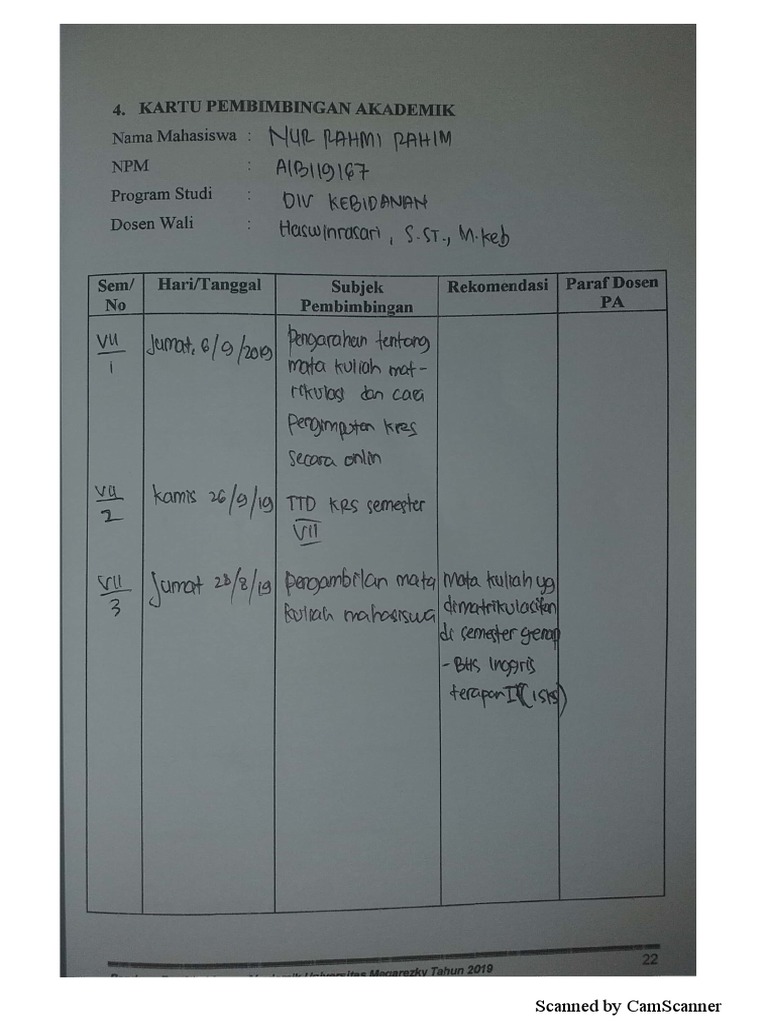 4. KARTU PEMBIMBINGAN AKADEMIK
Nama Mahasiswa : NUR RAHMI RAHIM
NPM : A1B119167
Program Studi : DIV KEBIDANAN
Dosen Wali : Haswinrasari, S.ST., M.Keb
Sem/ No Hari/Tanggal Subjek Pembimbingan Rekomendasi Paraf Dosen PA
VII/1 Jumat, 6/9/2019 Pengarahan tentang
mata kuliah mat-
rikulasi dan cara
Pengimputan KRS
secara onlin
VII/2 Kamis 26/9/19 TTD KRS semester
VII
VII/3 Jumat 28/8/19 Pengambilan mata Mata kuliah yg
kuliah mahasiswa dimatrikulasikan
di semester genap
- BHS Inggris
terapan
Akademik Universitas Megarezky Tahun 2019
22
Scanned by CamScanner